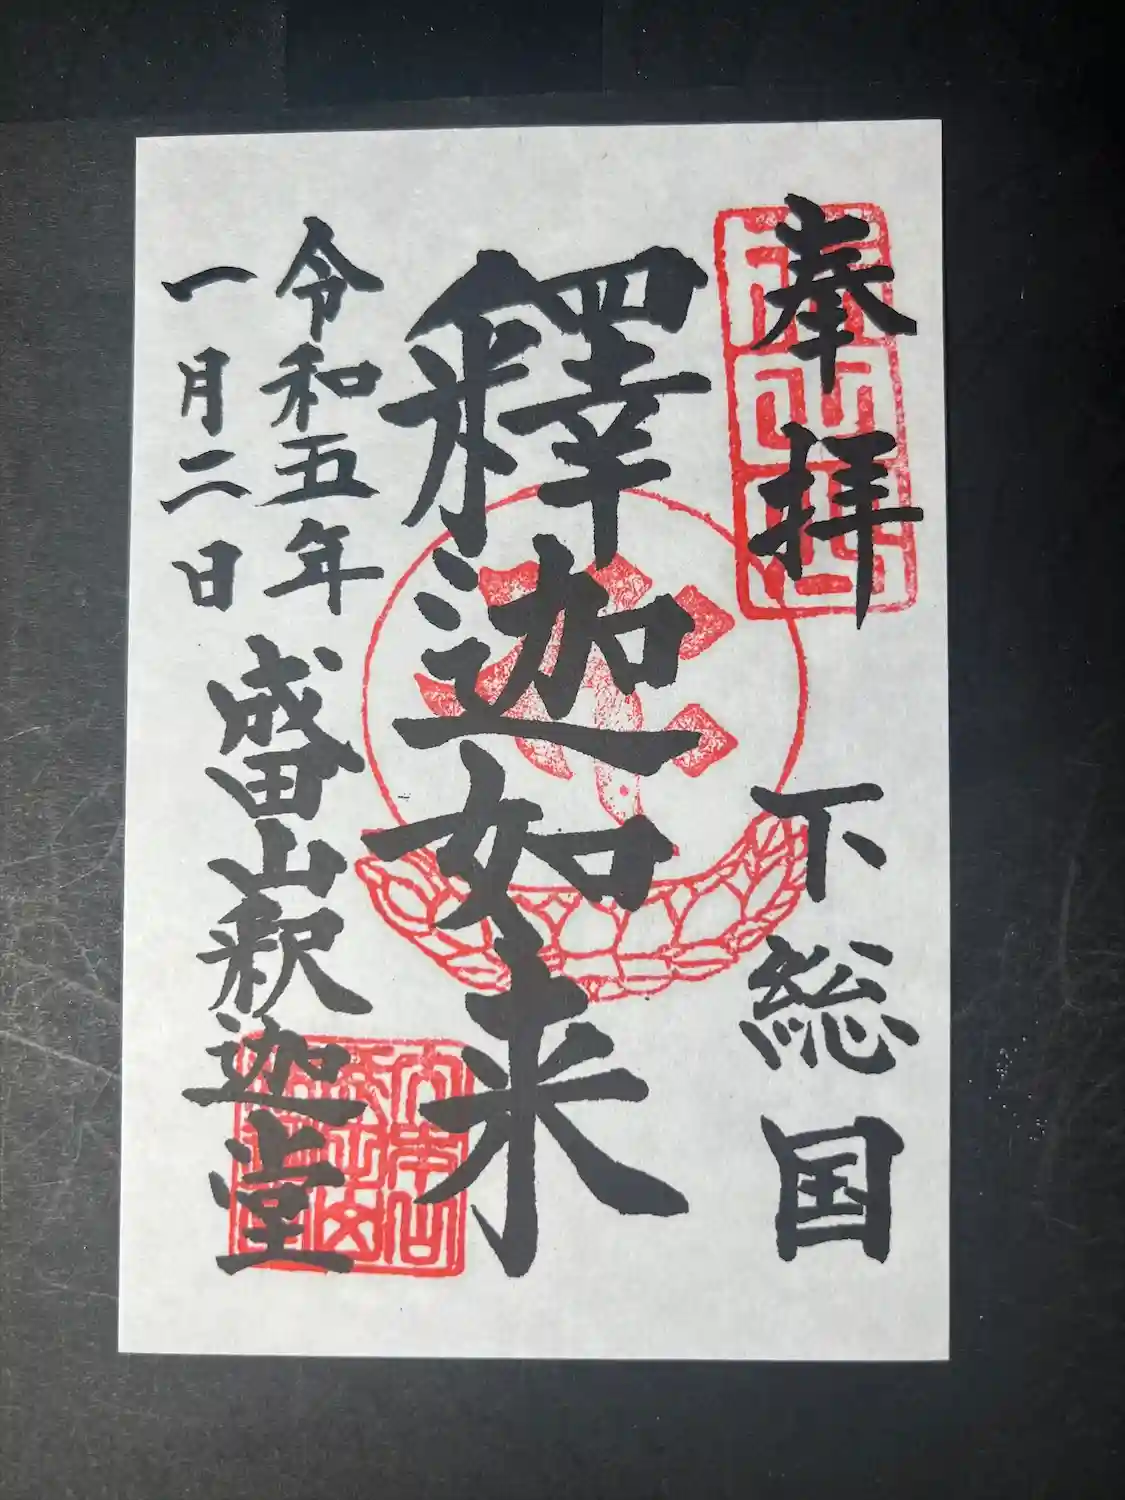 奉拝
下総国
釋迦如来
令和五年
一月二日
盛田山釈迦堂